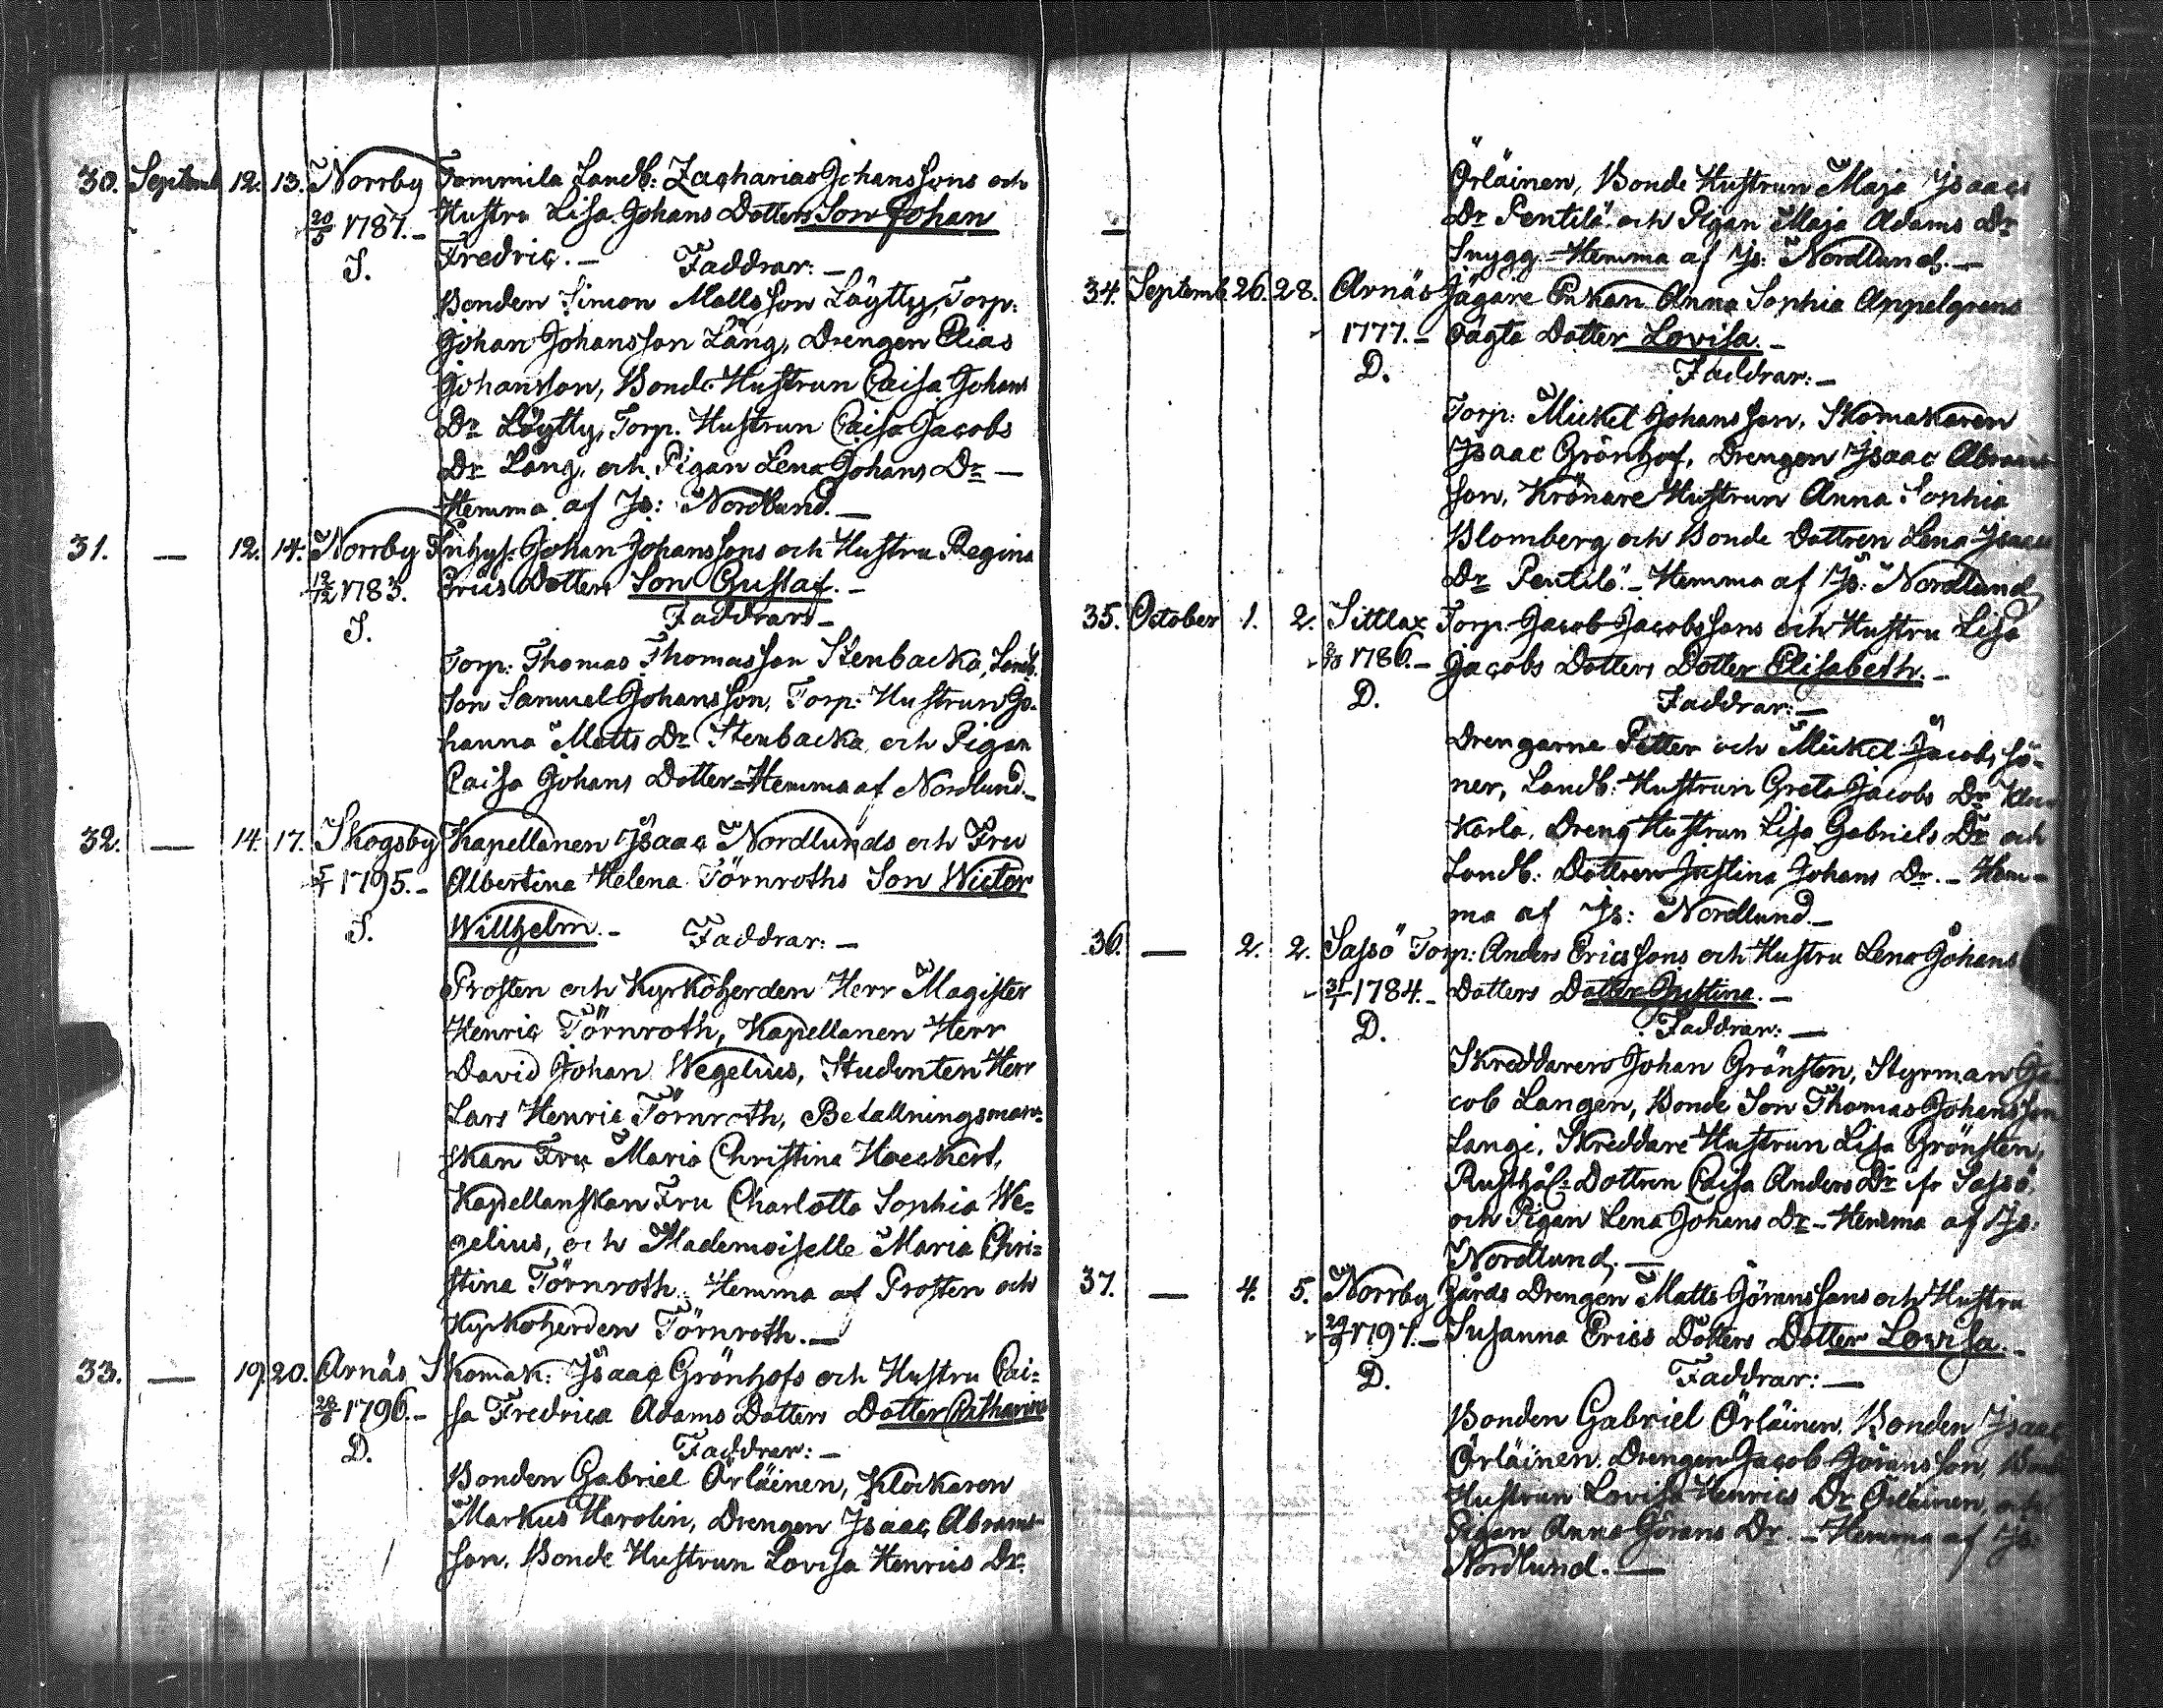 30. Septemb. 12. 13. Norrby Tommila Landb: Zacharias Johanssons och
20/5 1787. Hustru Lisa Johans Dotters Son Johan
S. Fredric. — Faddrar: —
Bonden Simon Mattsson Löytty, Torp:
Johan Johansson Lång, Drengen Elias
Johansson, Bonde Hustrun Caisa Johans
Dr Löytty, Torp. Hustrun Caisa Jacobs
Dr Lång, och Pigan Lena Johans Dr —
Hemma af Is: Nordlund. —
31. — 12. 14. Norrby Inhys: Johan Johanssons och Hustru Regina
19/12 1783. Erics Dotters Son Gustaf. —
S. Faddrar: —
Torp: Thomas Thomasson Stenbacka, Landb.
Son Samuel Johansson, Torp: Hustrun Jo-
hanna Matts Dr Stenbacka, och Pigan
Caisa Johans Dotter = Hemma af Nordlund. —
32. — 14. 17. Skogsby Kapellanen Isaac Nordlunds och Fru
1795. — Albertina Helena Törnroths Son Wictor
S. Willhelm. — Faddrar: —
Prosten och Kyrkoherden Herr Magister
Henric Törnroth, Kapellanen Herr
David Johan Wegelius, Studenten Herr
Lars Henric Törnroth, Befallningsman-
skan Fru Maria Christina Hoeckert,
Kapellanskan Fru Charlotta Sophia We=
gelius, och Mademoiselle Maria Chri=
stina Törnroth = Hemma af Prosten och
Kyrkoherden Törnroth. —
33. — 19. 20. Arnäs Skomak: Isaac Grönhofs och Hustru Cai=
1796. — sa Fredrica Adams Dotters Dotter Catharina
D. Faddrar: —
Bonden Gabriel Örläinen, Klockaren
Markus Harolin, Drengen Isaac Abrams-
son, Bonde Hustrun Lovisa Henrics Dr
Örläinen, Bonde Hustrun Maja Isaacs
— Dr Pentilä och Pigan Maja Adams Dr
Snygg = Hemma af Is: Nordlund. —
34. Septemb. 26. 28. Arnäs Jägare Enkan Anna Sophia Appelgrens
1777. — Oägta Dotter Lovisa. —
D. Faddrar: —
Torp: Mickel Johansson, Skomakaren
Isaac Grönhof, Drengen Isaac Abrams-
son, Krönare Hustrun Anna Sophia
Blomberg och Bonde Dottren Lena Isaacs
Dr Pentilä — Hemma af Is: Nordlund
35. October 1. 2. Sittlax Torp. Jacob Jacobssons och Hustru Lisa
1786. — Jacobs Dotters Dotter Elisabeth. —
D. Faddrar: —
Drengarne Petter och Mickel Jacobs sö-
ner, Landb: Hustrun Greta Jacobs Dr
Karla, Dreng Hustrun Lisa Gabriels Dr och
Landb: Dottren Justina Johans Dr. — Hem-
ma af Is: Nordlund. —
36. — 2. 2. Sassö Torp: Anders Ericssons och Hustru Lena Johans
31/1 1784. — Dotters Dotter Justina. —
D. Faddrar: —
Skreddaren Johan Grönsten, Styrman Ja-
cob Langen, Bonde Son Thomas Johansson
Langi, Skreddare Hustrun Lisa Grönsten,
Rusthål: Dottren Caisa Anders Dr ifr Sassö,
och Pigan Lena Johans Dr — Hemma af Is:
Nordlund. —
37. — 4. 5. Norrby Gårds Drengen Matts Jöranssons och Hustru
29/9 1797. — Susanna Erics Dotters Dotter Lovisa. —
D. Faddrar: —
Bonden Gabriel Örläinen, Bonden Isaac
Örläinen, Drengen Jacob Jöransson, Bonde
Hustrun Lovisa Henrics Dr Örläinen, och
Pigan Anna Jörans Dr. — Hemma af Is:
Nordlund. —